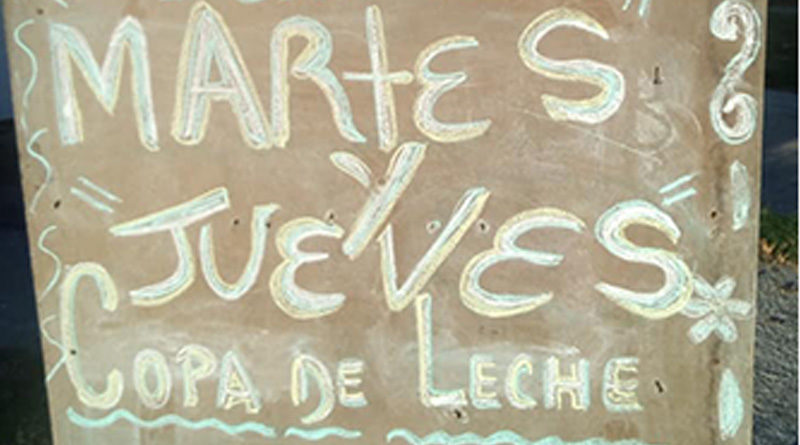 MARTES
Y
JUEVES
COPA DE LECHE